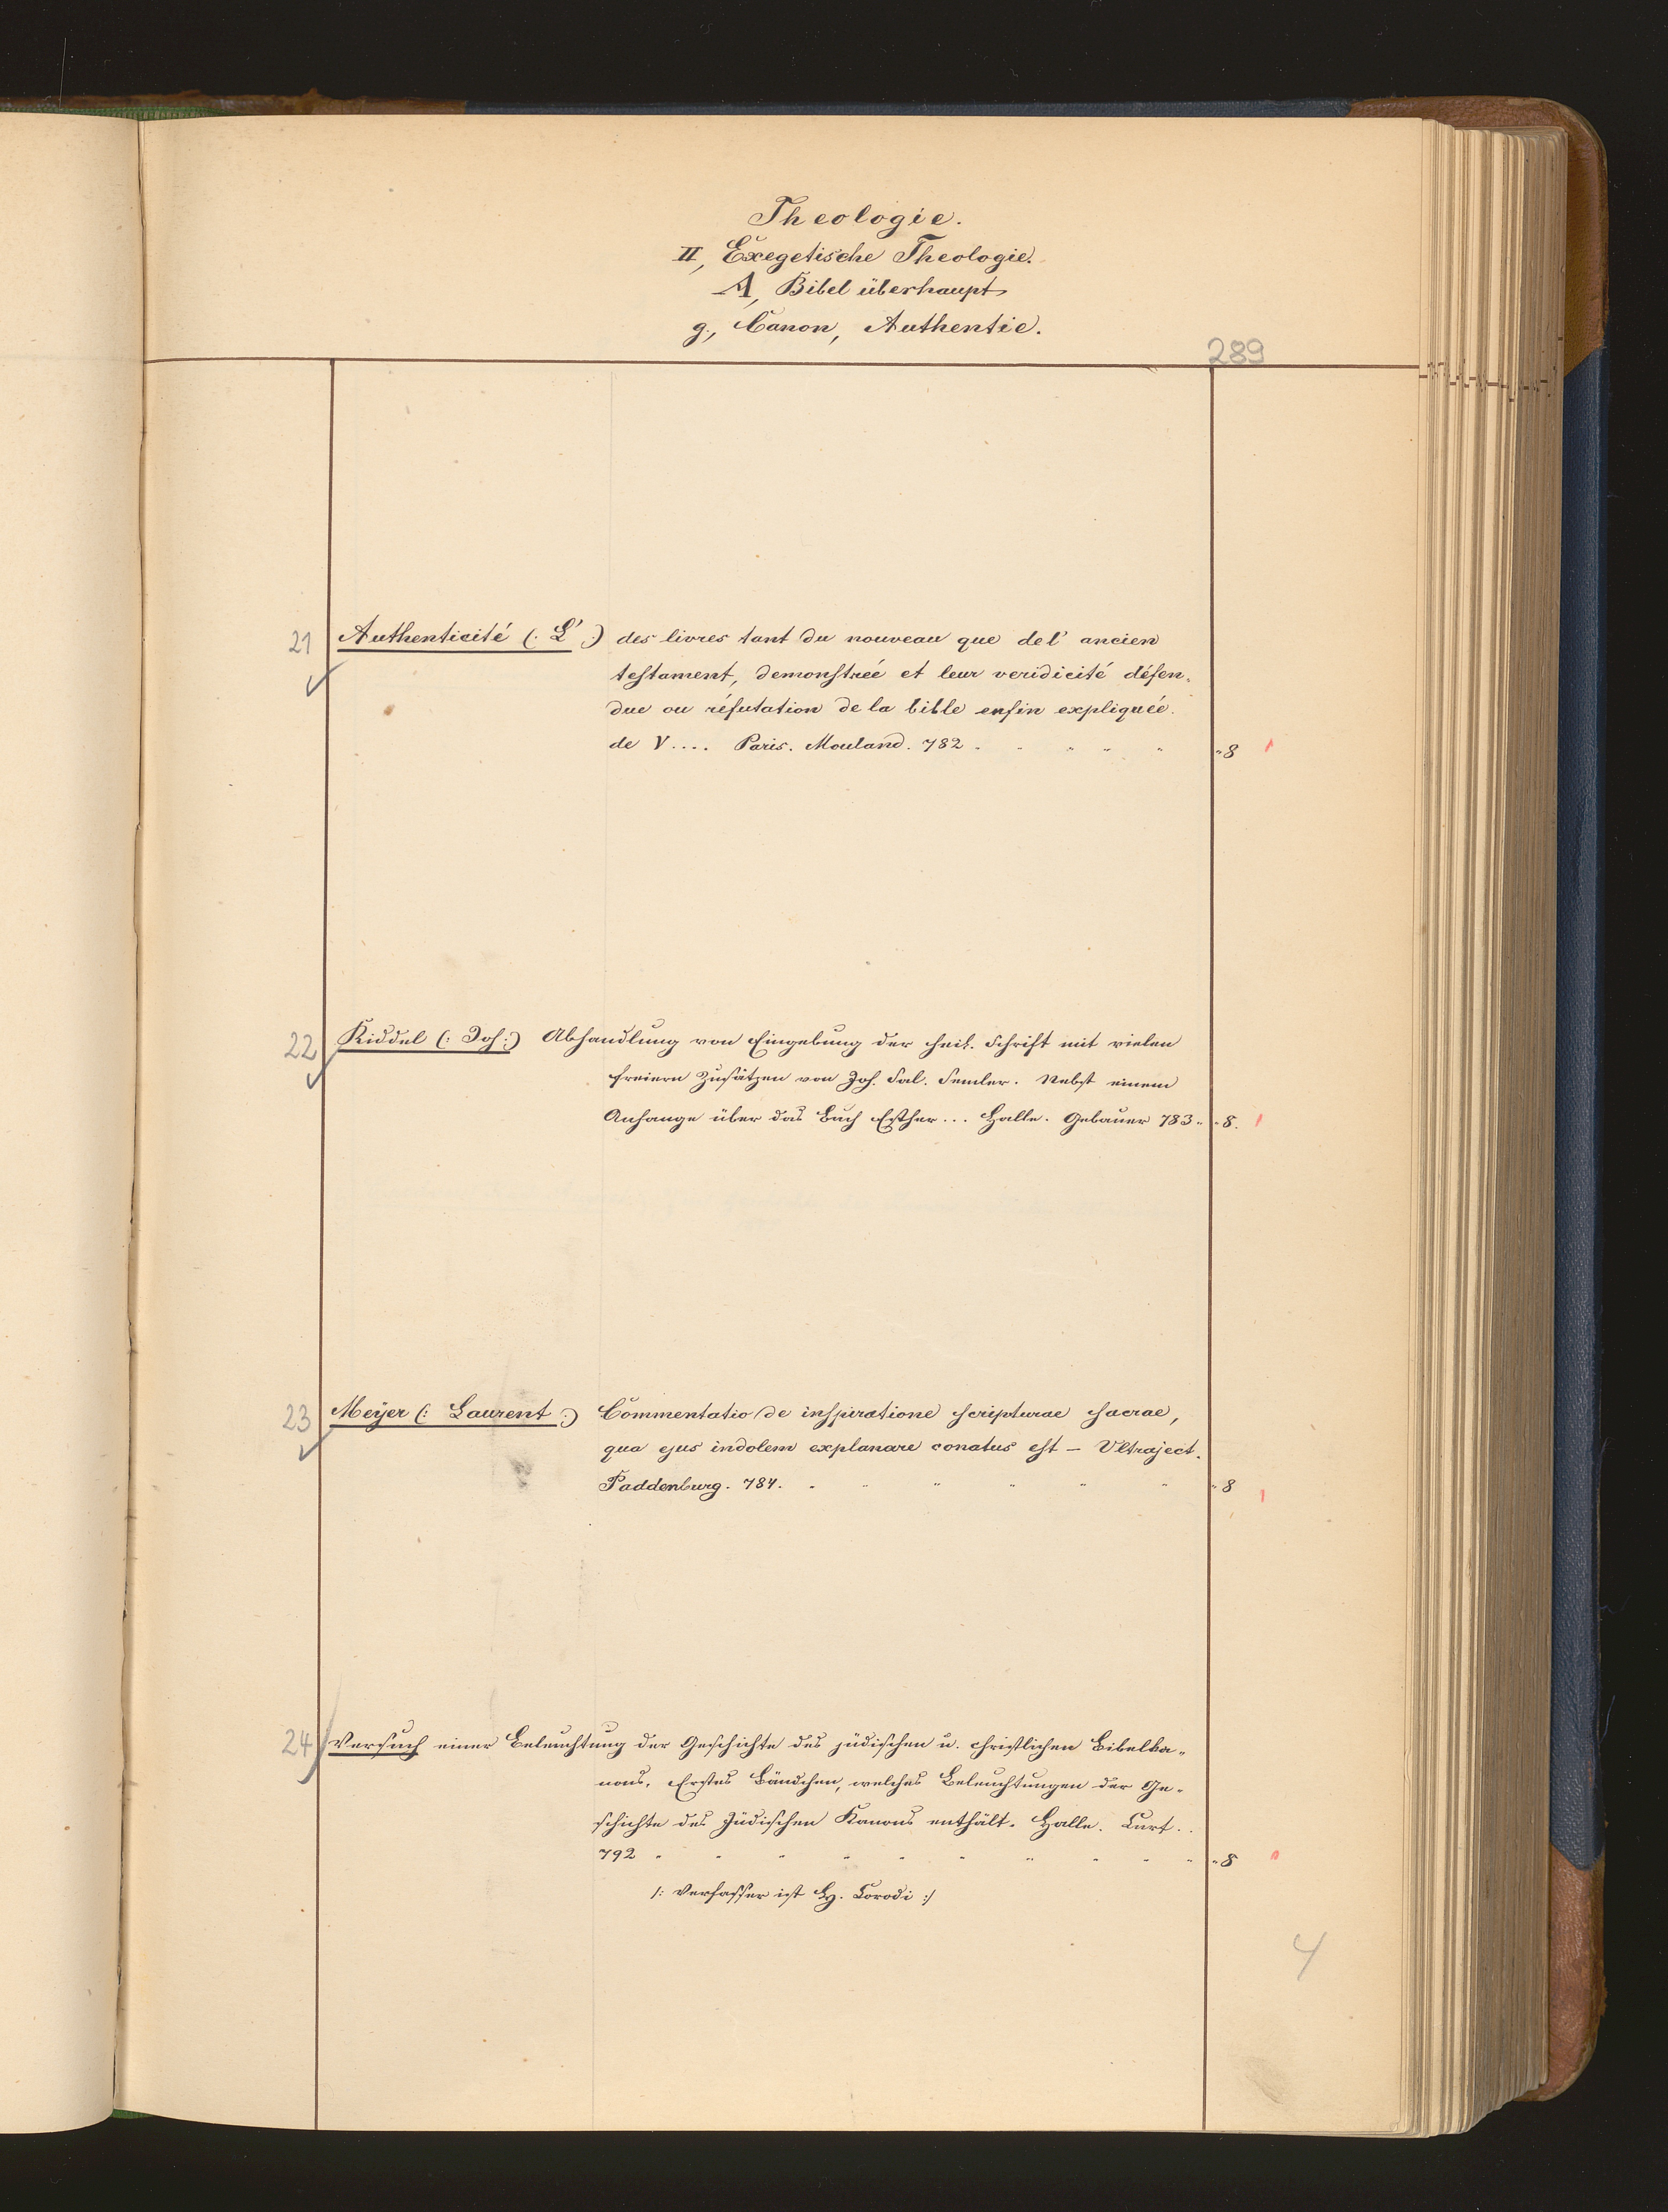 Theologie.
II, Exegetische Theologie.
A, Bibel überhaupt
g., Canon, Authentie.
289
21 Authenticité (: L' :) des livres tant du nouveau que del' ancien
testament, demonstreé et leur veridicité défen-
due ou réfutation de la bible enfin expliqueé.
de V.... Paris. Mouland. 782 " 8
22 Kiddel (: Joh :) Abhandlung von Eingebung der heil. Schrift mit vielen
freiern Zusätzen von Joh. Sal. Semler. Nebst einem
Anhange über das Buch Esther... Halle. Gebauer 783. " 8.
23 Meÿer (: Laurent :) Commentatio de inspiratione scripturae sacrae,
qua ejus indolem explanare conatus est – Ultraject.
Paddenburg. 784. " 8
24 Versuch einer Beleuchtung der Geschichte des jüdischen u. christlichen Bibelka-
nons. Erstes Bändchen, welches Beleuchtungen der Ge-
schichte des Jüdischen Kanons enthält. Halle. Curt.
792 " 8
/: Verfasser ist H. Corodi :/
4